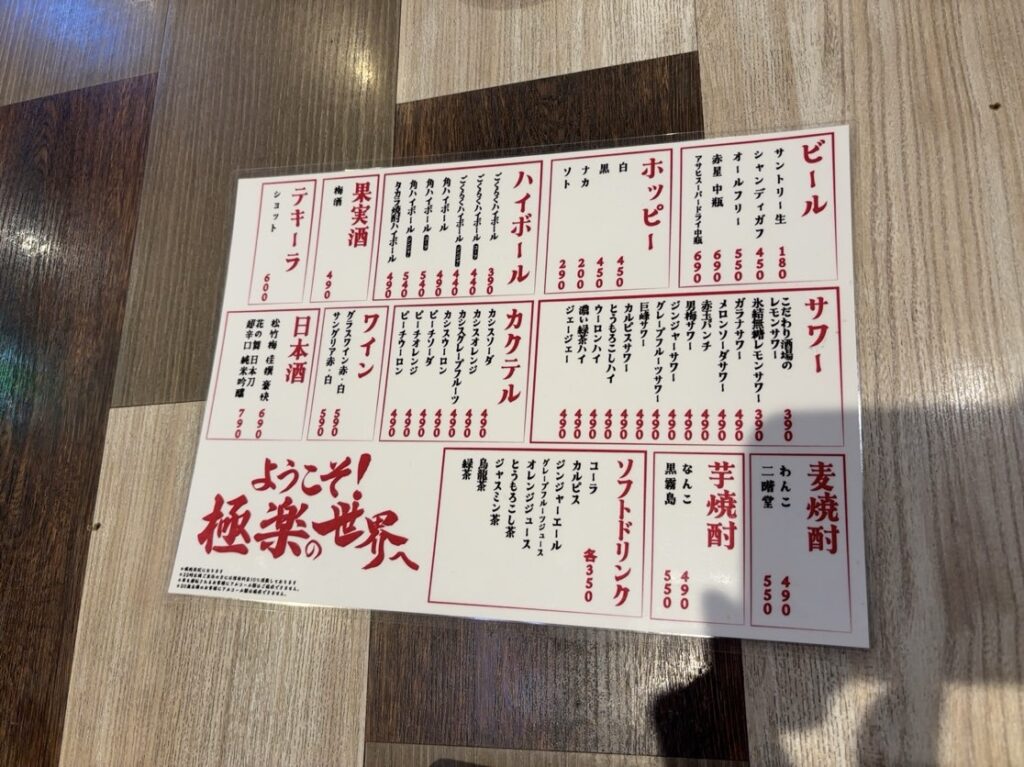 ビール
サントリー生 180
シャンディガフ 450
オールフリー 550
赤星 中瓶 690
アサヒスーパードライ中瓶 690
ホッピー
白 450
黒 450
ナカ 200
ソト 290
ハイボール
ごくらくハイボール 390
ごくらくハイボール 440
ごくらくハイボール 440
角ハイボール 490
角ハイボール 540
角ハイボール 540
タカラ焼酎ハイボール 490
果実酒
梅酒 490
テキーラ
ショット 600
サワー
こだわり酒場の
レモンサワー 390
氷結無糖レモンサワー 390
ガラナサワー 490
メロンソーダサワー 490
赤玉パンチ 490
男梅サワー 490
ジンジャーサワー 490
グレープフルーツサワー 490
巨峰サワー 490
カルピスサワー 490
とうもろこしハイ 490
ウーロンハイ 490
濃い緑茶ハイ 490
ジェージェー 490
カクテル
カシスソーダ 490
カシスオレンジ 490
カシスグレープフルーツ 490
カシスウーロン 490
ピーチソーダ 490
ピーチオレンジ 490
ピーチウーロン 490
ワイン
グラスワイン赤・白 590
サングリア赤・白 590
日本酒
松竹梅 豪快 690
花の舞 日本刀
超辛口 純米吟醸 790
麦焼酎
わんこ 490
二階堂 550
芋焼酎
なんこ 490
黒霧島 550
ソフトドリンク
各350
コーラ
カルピス
ジンジャーエール
グレープフルーツジュース
オレンジジュース
とうもろこし茶
ジャスミン茶
烏龍茶
緑茶
ようこそ!
極楽の世界へ